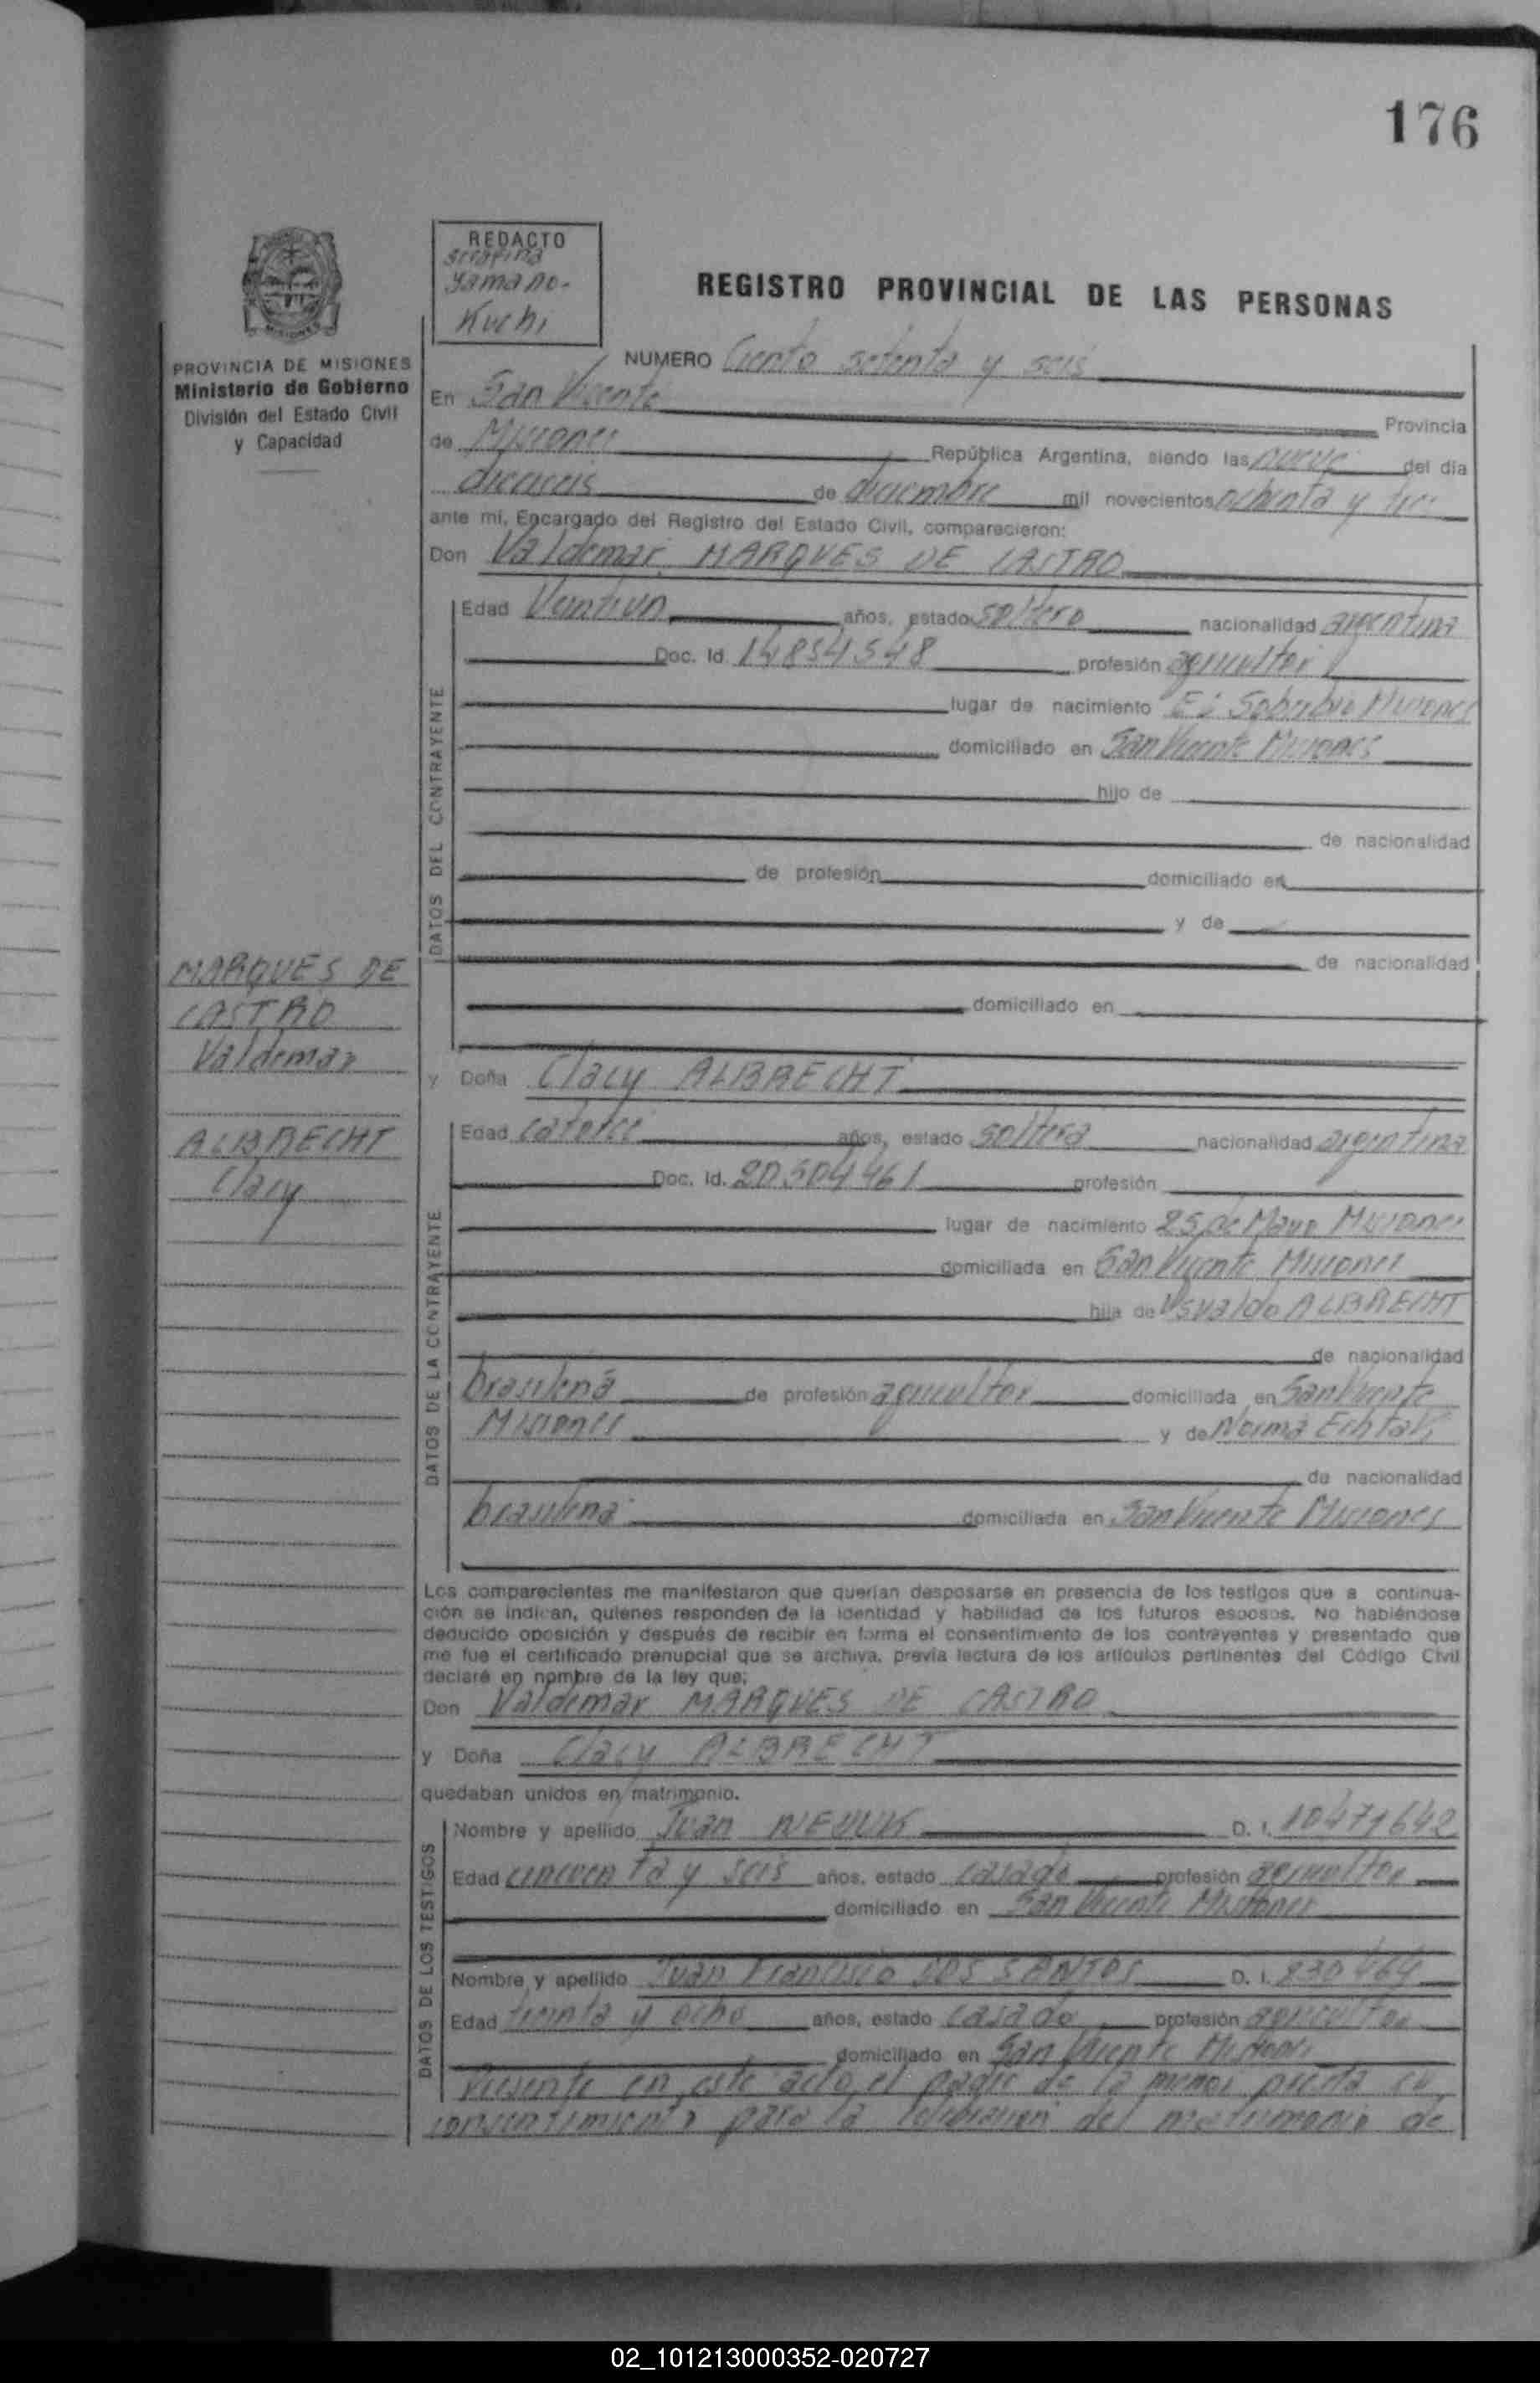 176
REDACTO
Serafina
Yamano-
Kuchi
REGISTRO PROVINCIAL DE LAS PERSONAS
PROVINCIA DE MISIONES
Ministerio de Gobierno
División del Estado Civil
y Capacidad
NUMERO Ciento setenta y seis
En San Vicente
Provincia
de Misiones República Argentina, siendo las nueve del día
dieciseis de diciembre mil novecientos ochenta y tres
ante mí, Encargado del Registro del Estado Civil, comparecieron:
Don Valdemar MARQUES DE CASTRO
DATOS DEL CONTRAYENTE
Edad Veintiun años, estado soltero nacionalidad argentina
Doc. Id. 14854548 profesión agricultor
lugar de nacimiento El Soberbio Misiones
domiciliado en San Vicente Misiones
hijo de
de nacionalidad
de profesión domiciliado en
y de
de nacionalidad
domiciliado en
MARQUES DE
CASTRO
Valdemar
ALBRECHT
Clacy
y Doña Clacy ALBRECHT
DATOS DE LA CONTRAYENTE
Edad catorce años, estado soltera nacionalidad argentina
Doc. Id. 20504461 profesión
lugar de nacimiento 25 de Mayo Misiones
domiciliada en San Vicente Misiones
hija de Osvaldo ALBRECHT
de nacionalidad
brasilena de profesión agricultor domiciliada en San Vicente
Misiones y de Norma
de nacionalidad
brasilena domiciliada en San Vicente Misiones
Los comparecientes me manifestaron que querían desposarse en presencia de los testigos que a continua-
ción se indican, quienes responden de la identidad y habilidad de los futuros esposos. No habiéndose
deducido oposición y después de recibir en forma el consentimiento de los contrayentes y presentado que
me fue el certificado prenupcial que se archiva, previa lectura de los artículos pertinentes del Código Civil
declaré en nombre de la ley que:
Don Valdemar MARQUES DE CASTRO
y Doña Clacy ALBRECHT
quedaban unidos en matrimonio.
DATOS DE LOS TESTIGOS
Nombre y apellido Juan D. I. 10471642
Edad cincuenta y seis años, estado casado profesión agricultor
domiciliado en San Vicente Misiones
Nombre y apellido Juan Francisco DOS SANTOS D. I. 830464
Edad treinta y ocho años, estado casado profesión agricultor
domiciliado en San Vicente Misiones
Presente en este acto el padre de la menor presta su
consentimiento para la celebracion del matrimonio de
02_101213000352-020727